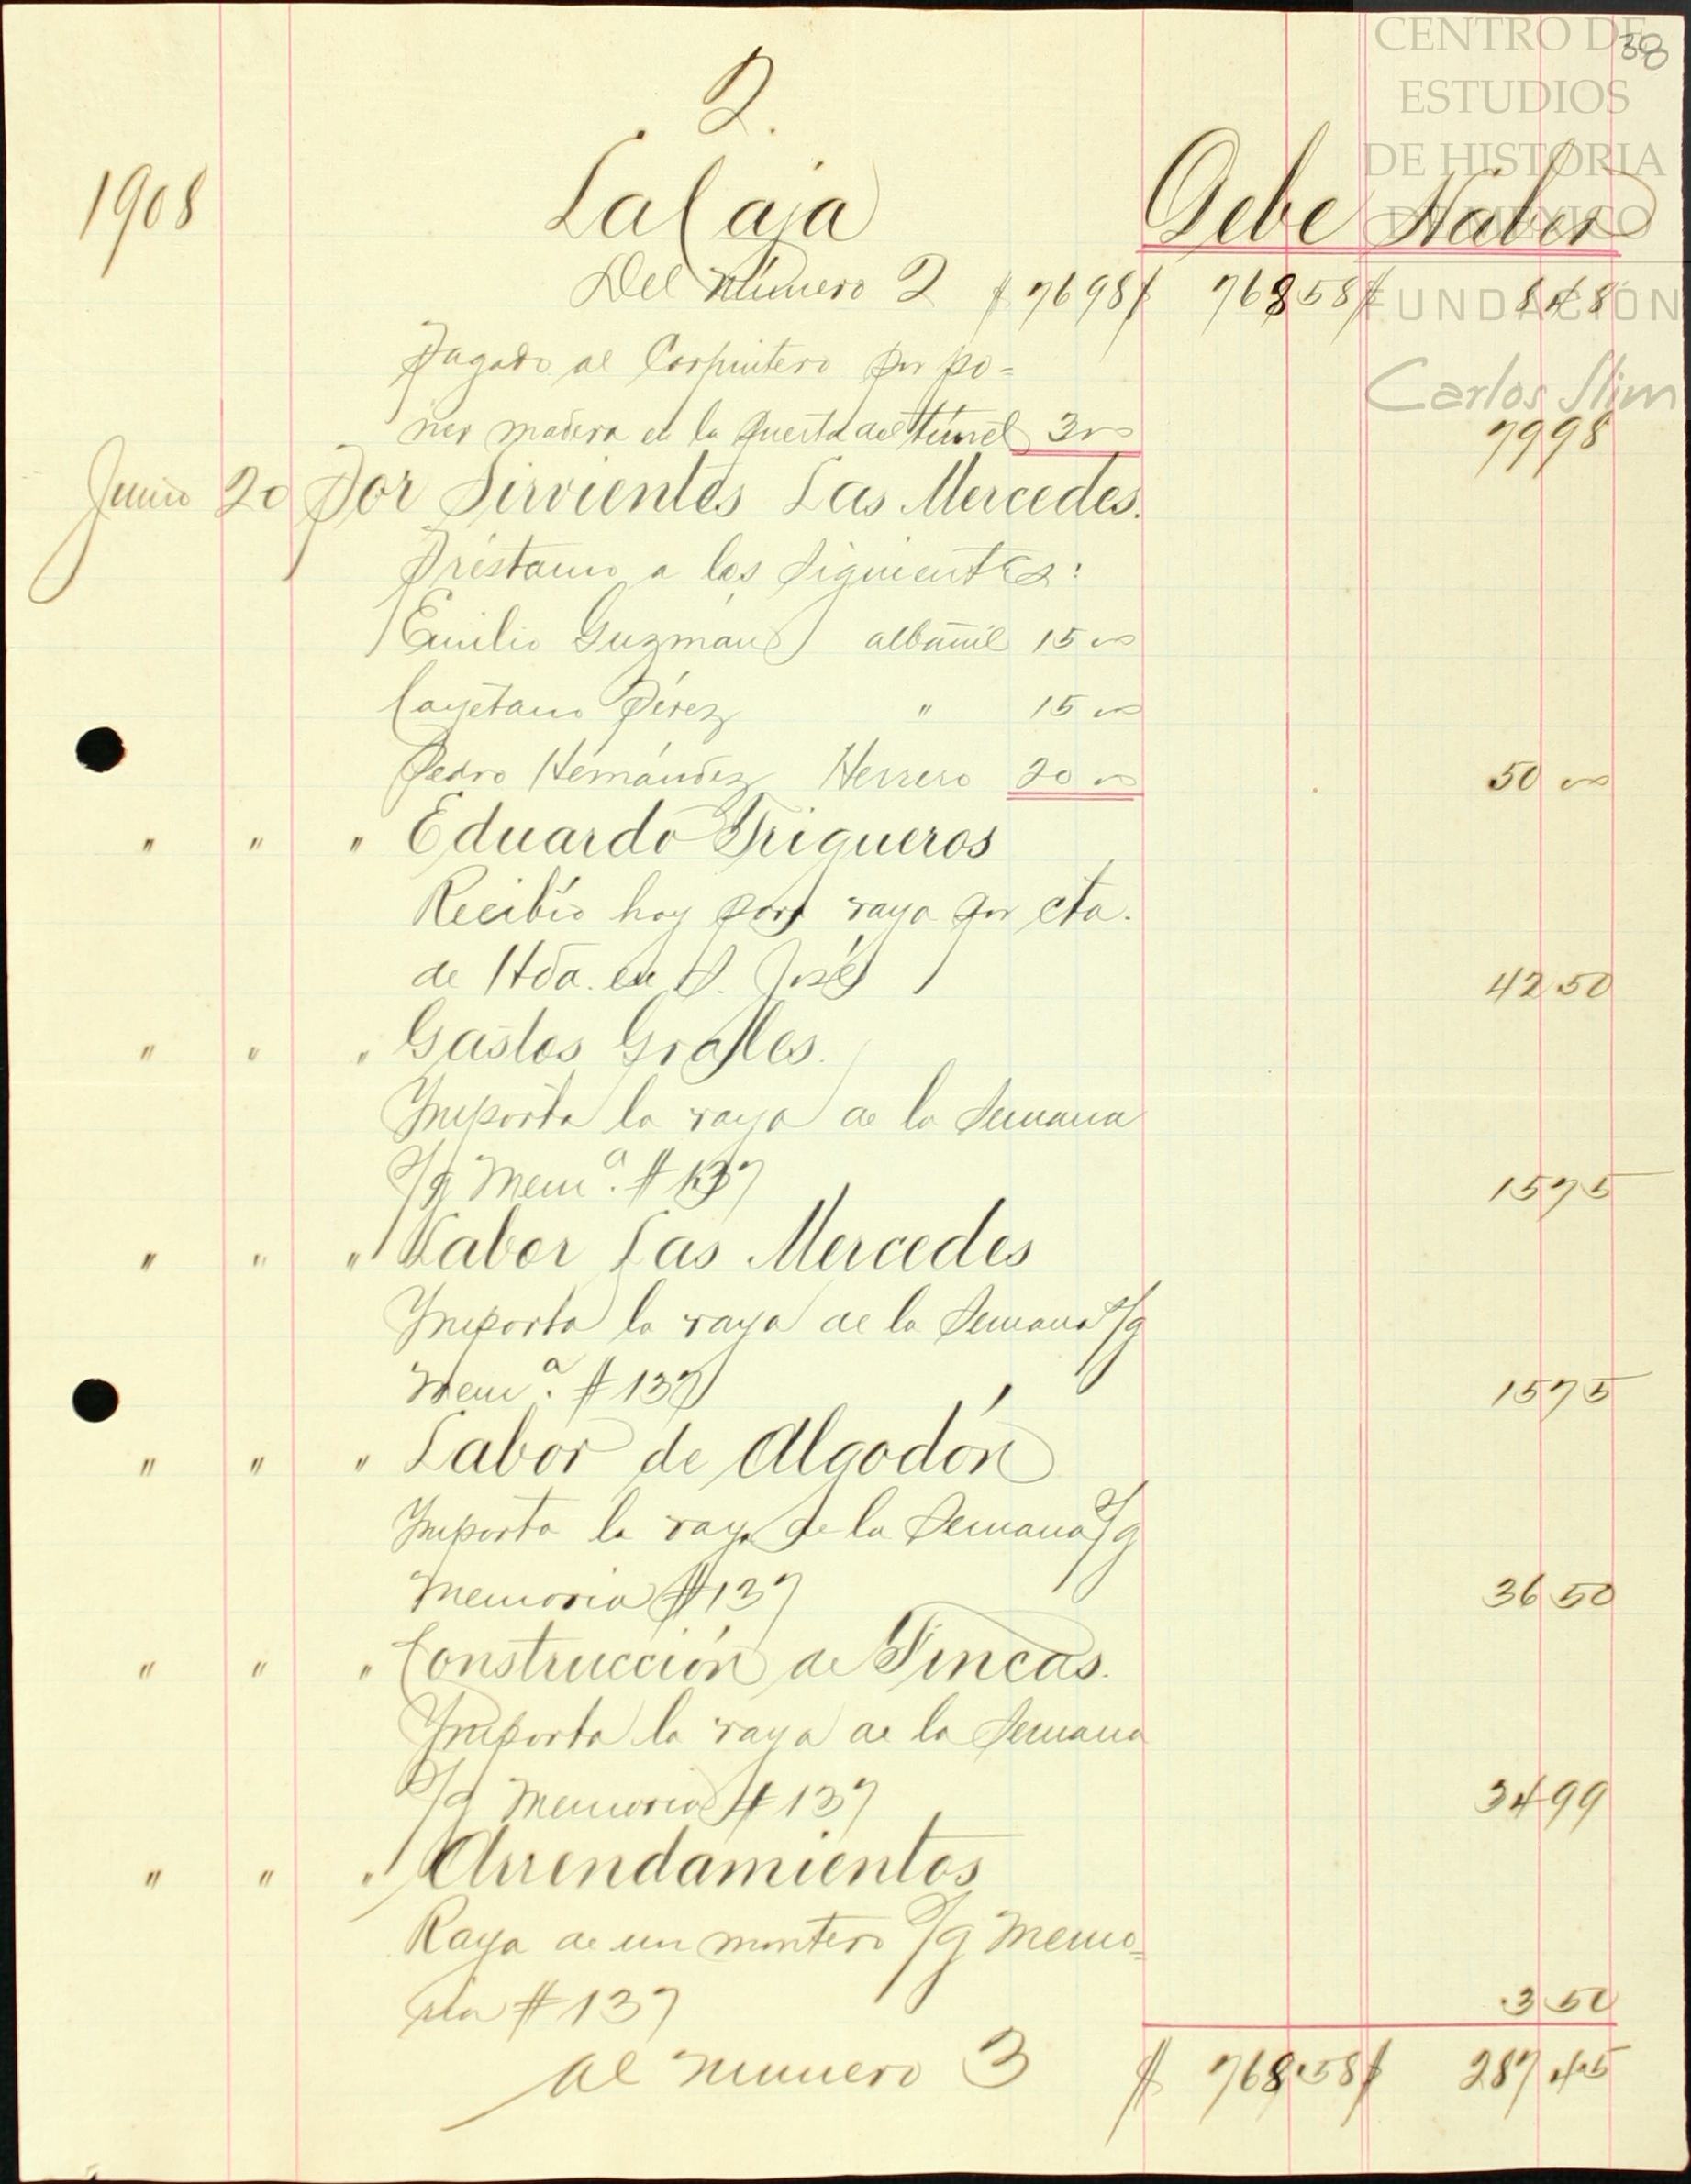 CENTRO DE
ESTUDIOS
DE HISTORIA
DE MÉXICO
FUNDACIÓN
Carlos Slim
38
2.
1908 La Caja Debe Haber
Del número 2 $ 76 98 $ 768 58 $ 8 48
Pagado al Carpintero por po=
ner madera en la puerta del túnel 3 00 79 98
Junio 20 Por Sirvientes Las Mercedes.
Préstamo a los siguientes:
Emilio Guzmán albañil 15 00
Cayetano Pérez " 15 00
Pedro Hernández Herrero 20 00 50 00
" " " Eduardo Trigueros
Recibió hoy para raya por cta.
de Hda. en S. José 42 50
" " " Gastos Grales.
Importa la raya de la semana
s/g Mema. # 137 15 75
" " " Labor Las Mercedes
Importa la raya de la semana s/g
Mema. # 137 15 75
" " " Labor de Algodón
Importa la raya de la semana s/g
Memoria # 137 36 50
" " " Construcción de Fincas.
Importa la raya de la semana
s/g Memoria # 137 34 99
" " " Arrendamientos
Raya de un montero s/g Memo=
ria # 137 3 50
al número 3 $ 768 58 $ 287 45